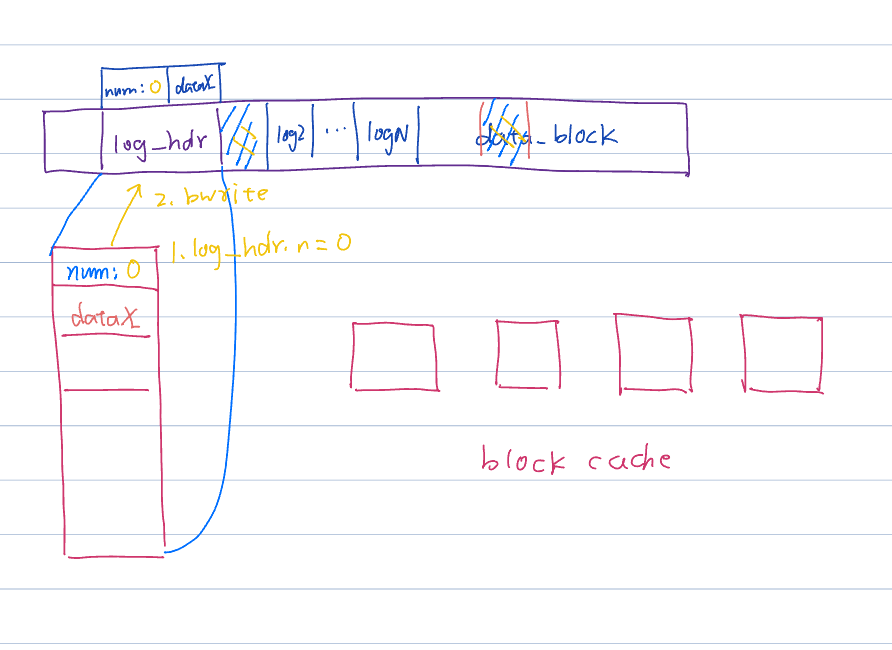 num: 0 dataX
log_hdr log2 ... logN data_block
2. bwrite
1. log_hdr. n = 0
num: 0
dataX
block cache